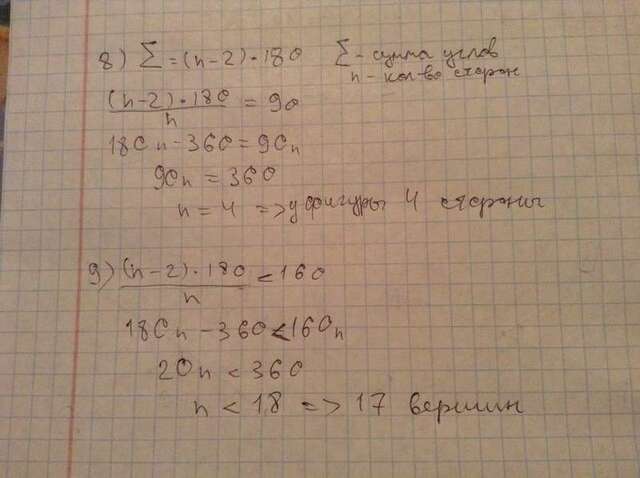 8) Σ = (n-2) · 180 Σ - сумма углов
n - кол-во сторон
(n-2) · 180 / n = 90
180n - 360 = 90n
90n = 360
n = 4 => у фигуры 4 стороны
9) (n-2) · 180 / n < 160
180n - 360 < 160n
20n < 360
n < 18 => 17 вершин